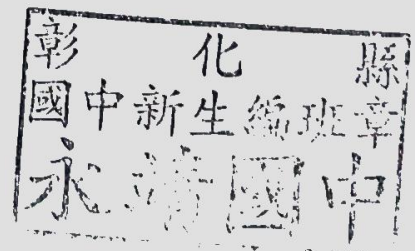 彰化縣
國中新生編班章
永靖國中